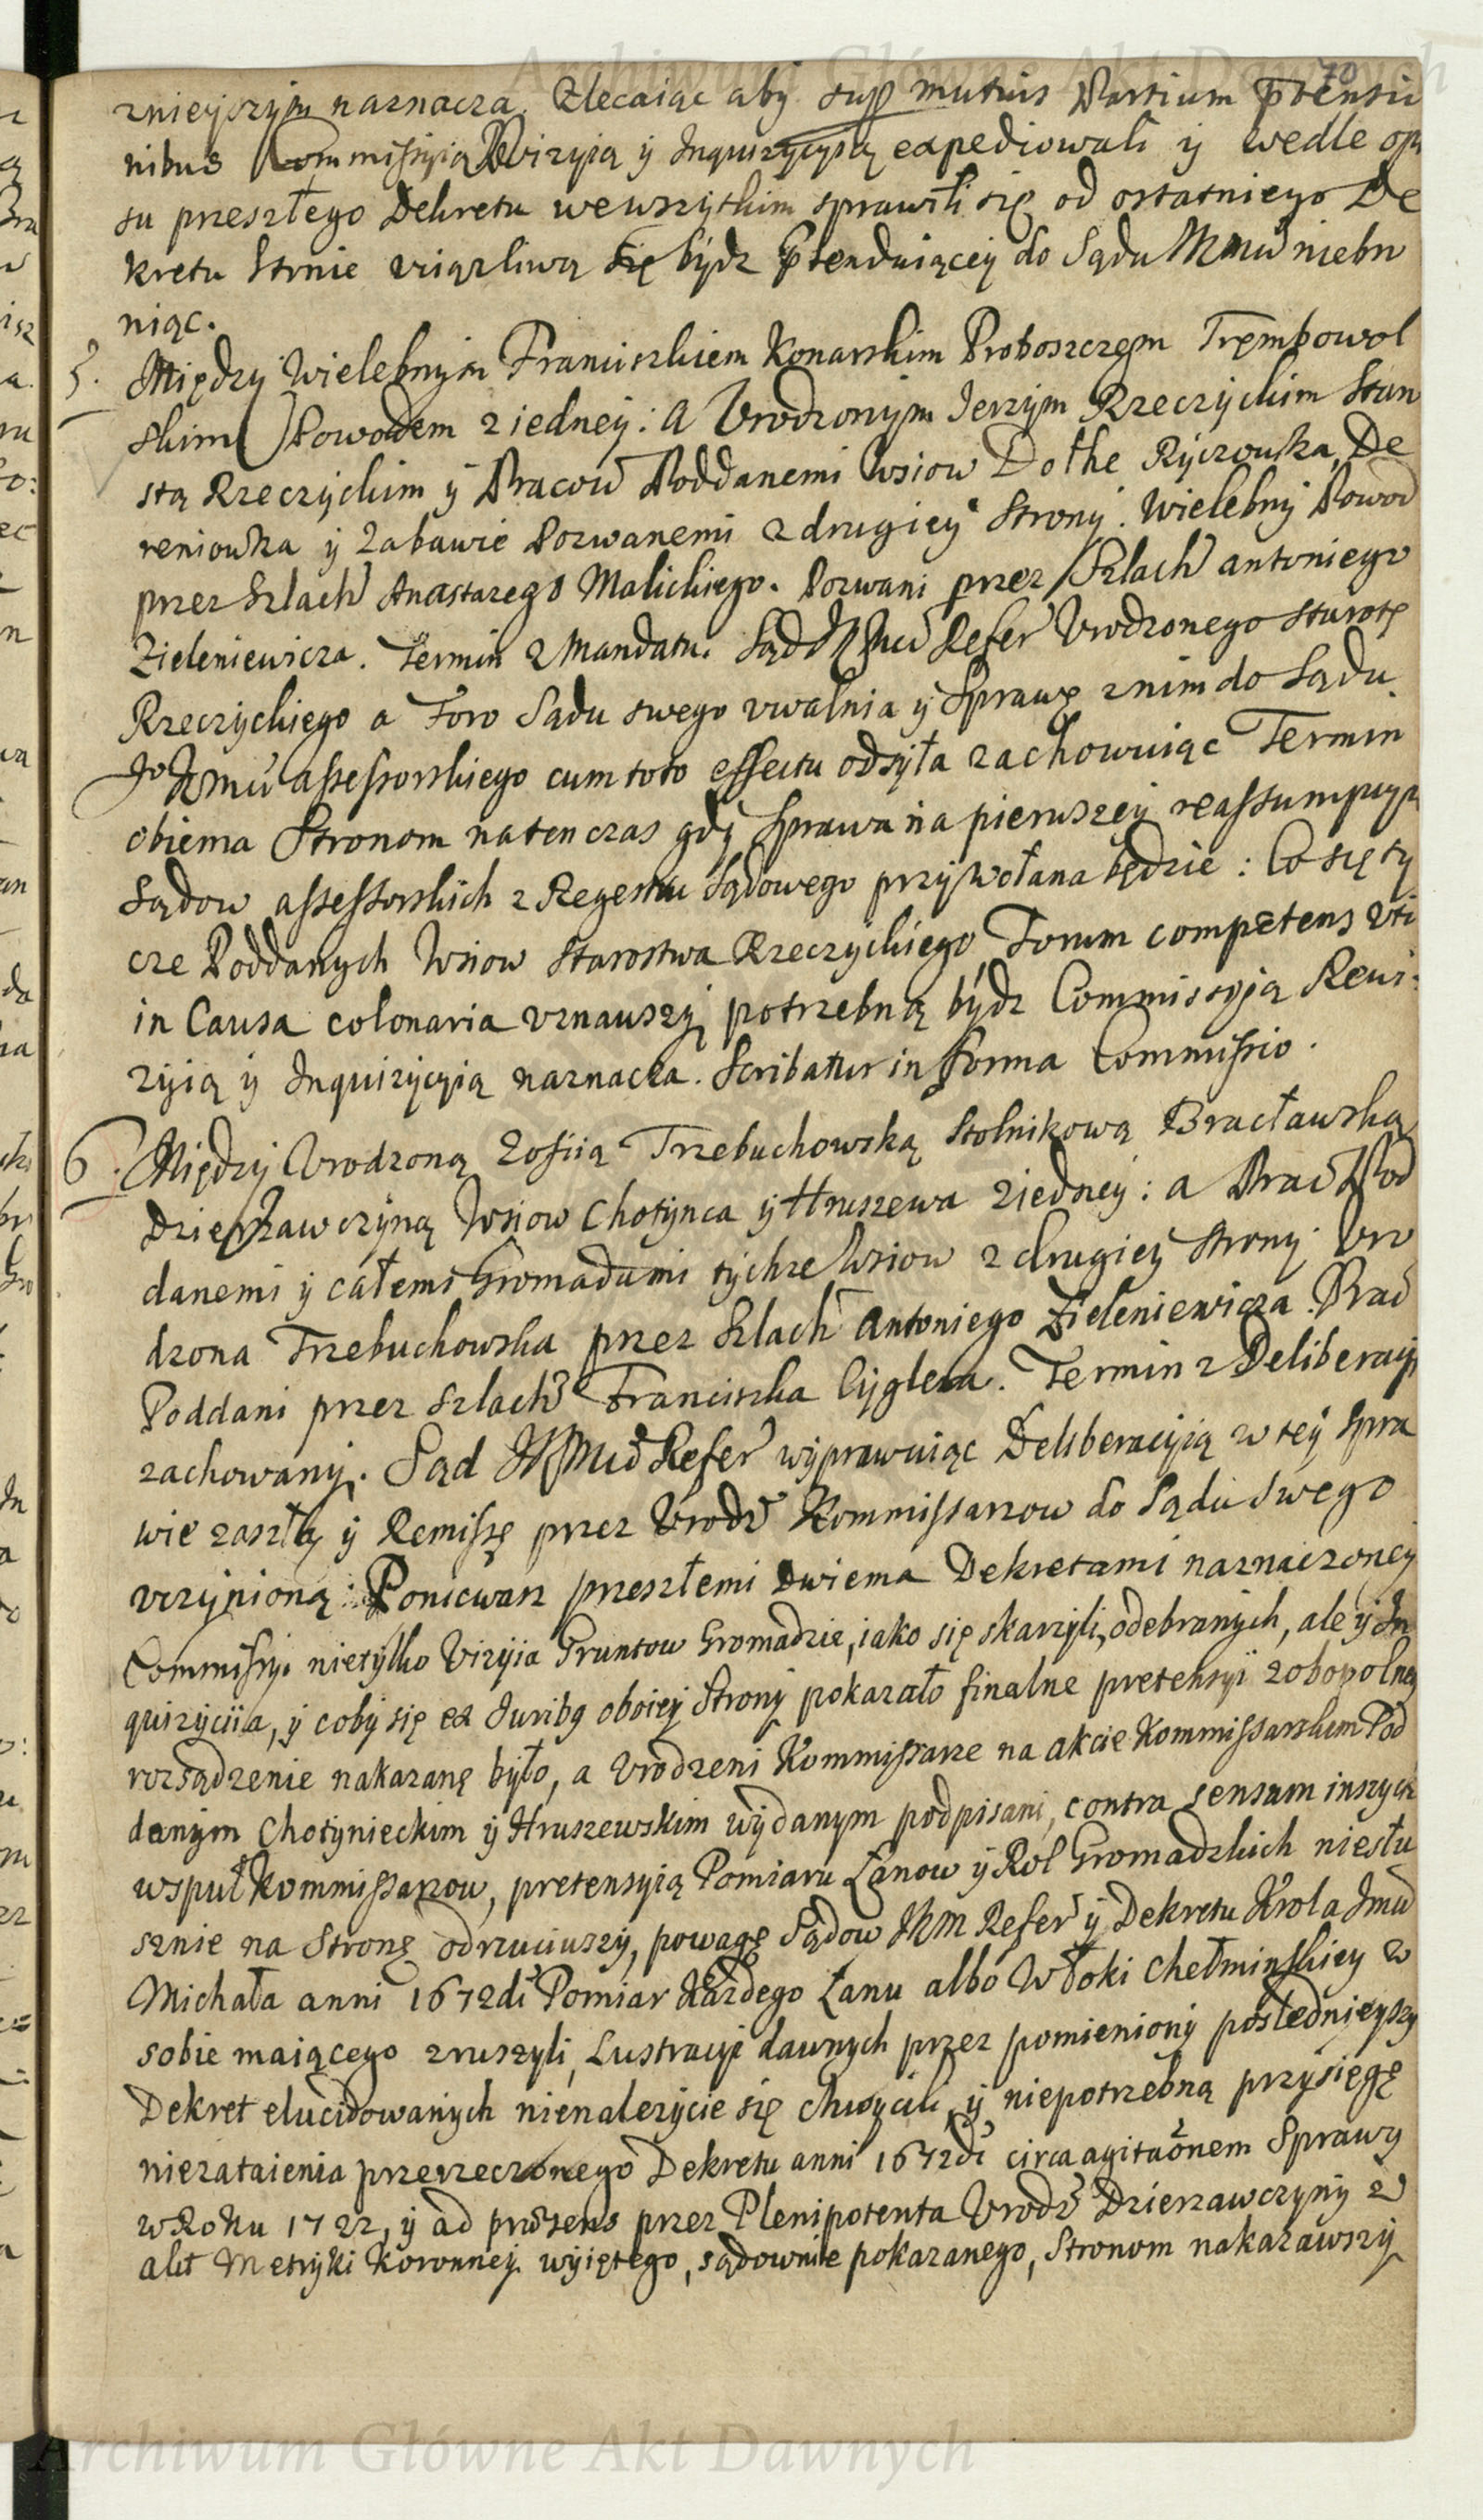 Archiwum Główne Akt Dawnych
70
znieyszym naznacza. Zlecaiąc aby sup mutuis Partium ptensio
nibus Commissyią Wizyią y Inquizycyią expediowali y wedle opi
su przeszłego Dekretu wewszytkim sprawili się od ostatniego De
kretu Stronie uciążliwą się bydz ptenduiącey do Sądu niebro
niąc.
5. Między Wielebnym Franciszkiem Konarskim Proboszczem Trembowol
skim Powodem z iedney: A Urodzonym Jerzym Rzeczyckim Staro
stą Rzeczyckim y Pracow Poddanemi Wsiow Dothe Ryczowka, De
reniowka y Zabawie Pozwanemi z drugiey Strony. Wielebny Powod
przez Szlach Anastazego Malickiego. Pozwani przez Szlach antoniego
Zieleniewicza. Termin z Mandatu. Sąd JKMci Refer Urodzonego Starostę
Rzeczyckiego a Foro Sądu swego uwalnia y Sprawę znim do Sądu
JoKMci assessorskiego cum toto effectu odsyła zachowuiąc Termin
obiema Stronom natenczas gdy Sprawa na pierwszey reassumpcyi
Sądow assessorskich z Regestru Sądowego przywołana będzie: Co się ty
cze Poddanych Wsiow Starostwa Rzeczyckiego, Forum competens uti
in Causa colonaria uznawszy potrzebną bydz Commissyią Rewi
zyią y Inquizycyią naznacza. Scribatur in Forma Commissio.
6. Między Urodzoną Zofiią Trzebuchowską Stolnikową Bracławską
Dzierżawczyną Wsiow Chotynca y Hruszewa ziedney: a Prac Pod
danemi y całemi Gromadami tychze Wsiow z drugiey strony Uro
dzona Trzebuchowska przez Szlach Antoniego Zieleniewicza. Prac
Poddani przez szlach Franciszka Cyglera. Termin z Deliberacyi
zachowany. Sąd JKMci Refer wyprawuiąc Deliberacyią w tey Spra
wie zaszłą y Remissę przez Urodz Kommissarzow do Sądu swego
uczynioną: Poniewaz przeszłemi dwiema Dekretami naznaczoney
Commissyi nietylko Vizyia Gruntow Gromadzie, iako się skarzyli, odebranych, ale y In
quizyciia, y coby się ex Juribq oboiey Strony pokazało finalne pretensyi zobopolney
rozsądzenie nakazanę było, a Urodzeni Kommissarze na akcie Kommissarskim Pod
danym Chotynieckim y Hruszewskim wydanym podpisani, contra sensum inszych
wspuł Kommissarzow, pretensyią Pomiaru Łanow y Rol Gromadzkich niesłu
sznie na Stronę odrzuciwszy, powagę Sądow JKM Refer y Dekretu Krola Jmci
Michała anni 1672di Pomiar Każdego Łanu albo Włoki chełminskiey w
sobie maiącego zruszyli, Lustracyi dawnych przez pomieniony poslednieyszy
Dekret elucidowanych nienalezycie się chwycili, y niepotrzebną przysięgę
niezataienia przerzeczonego Dekretu anni 1672di circa agitaonem Sprawy
w Roku 1722, y ad prosens przez Plenipotenta Urodz Dzierzawczyny z
akt Metryki Koronney wyiętego, sądownie pokazanego, Stronom nakazawszy
Archiwum Główne Akt Dawnych